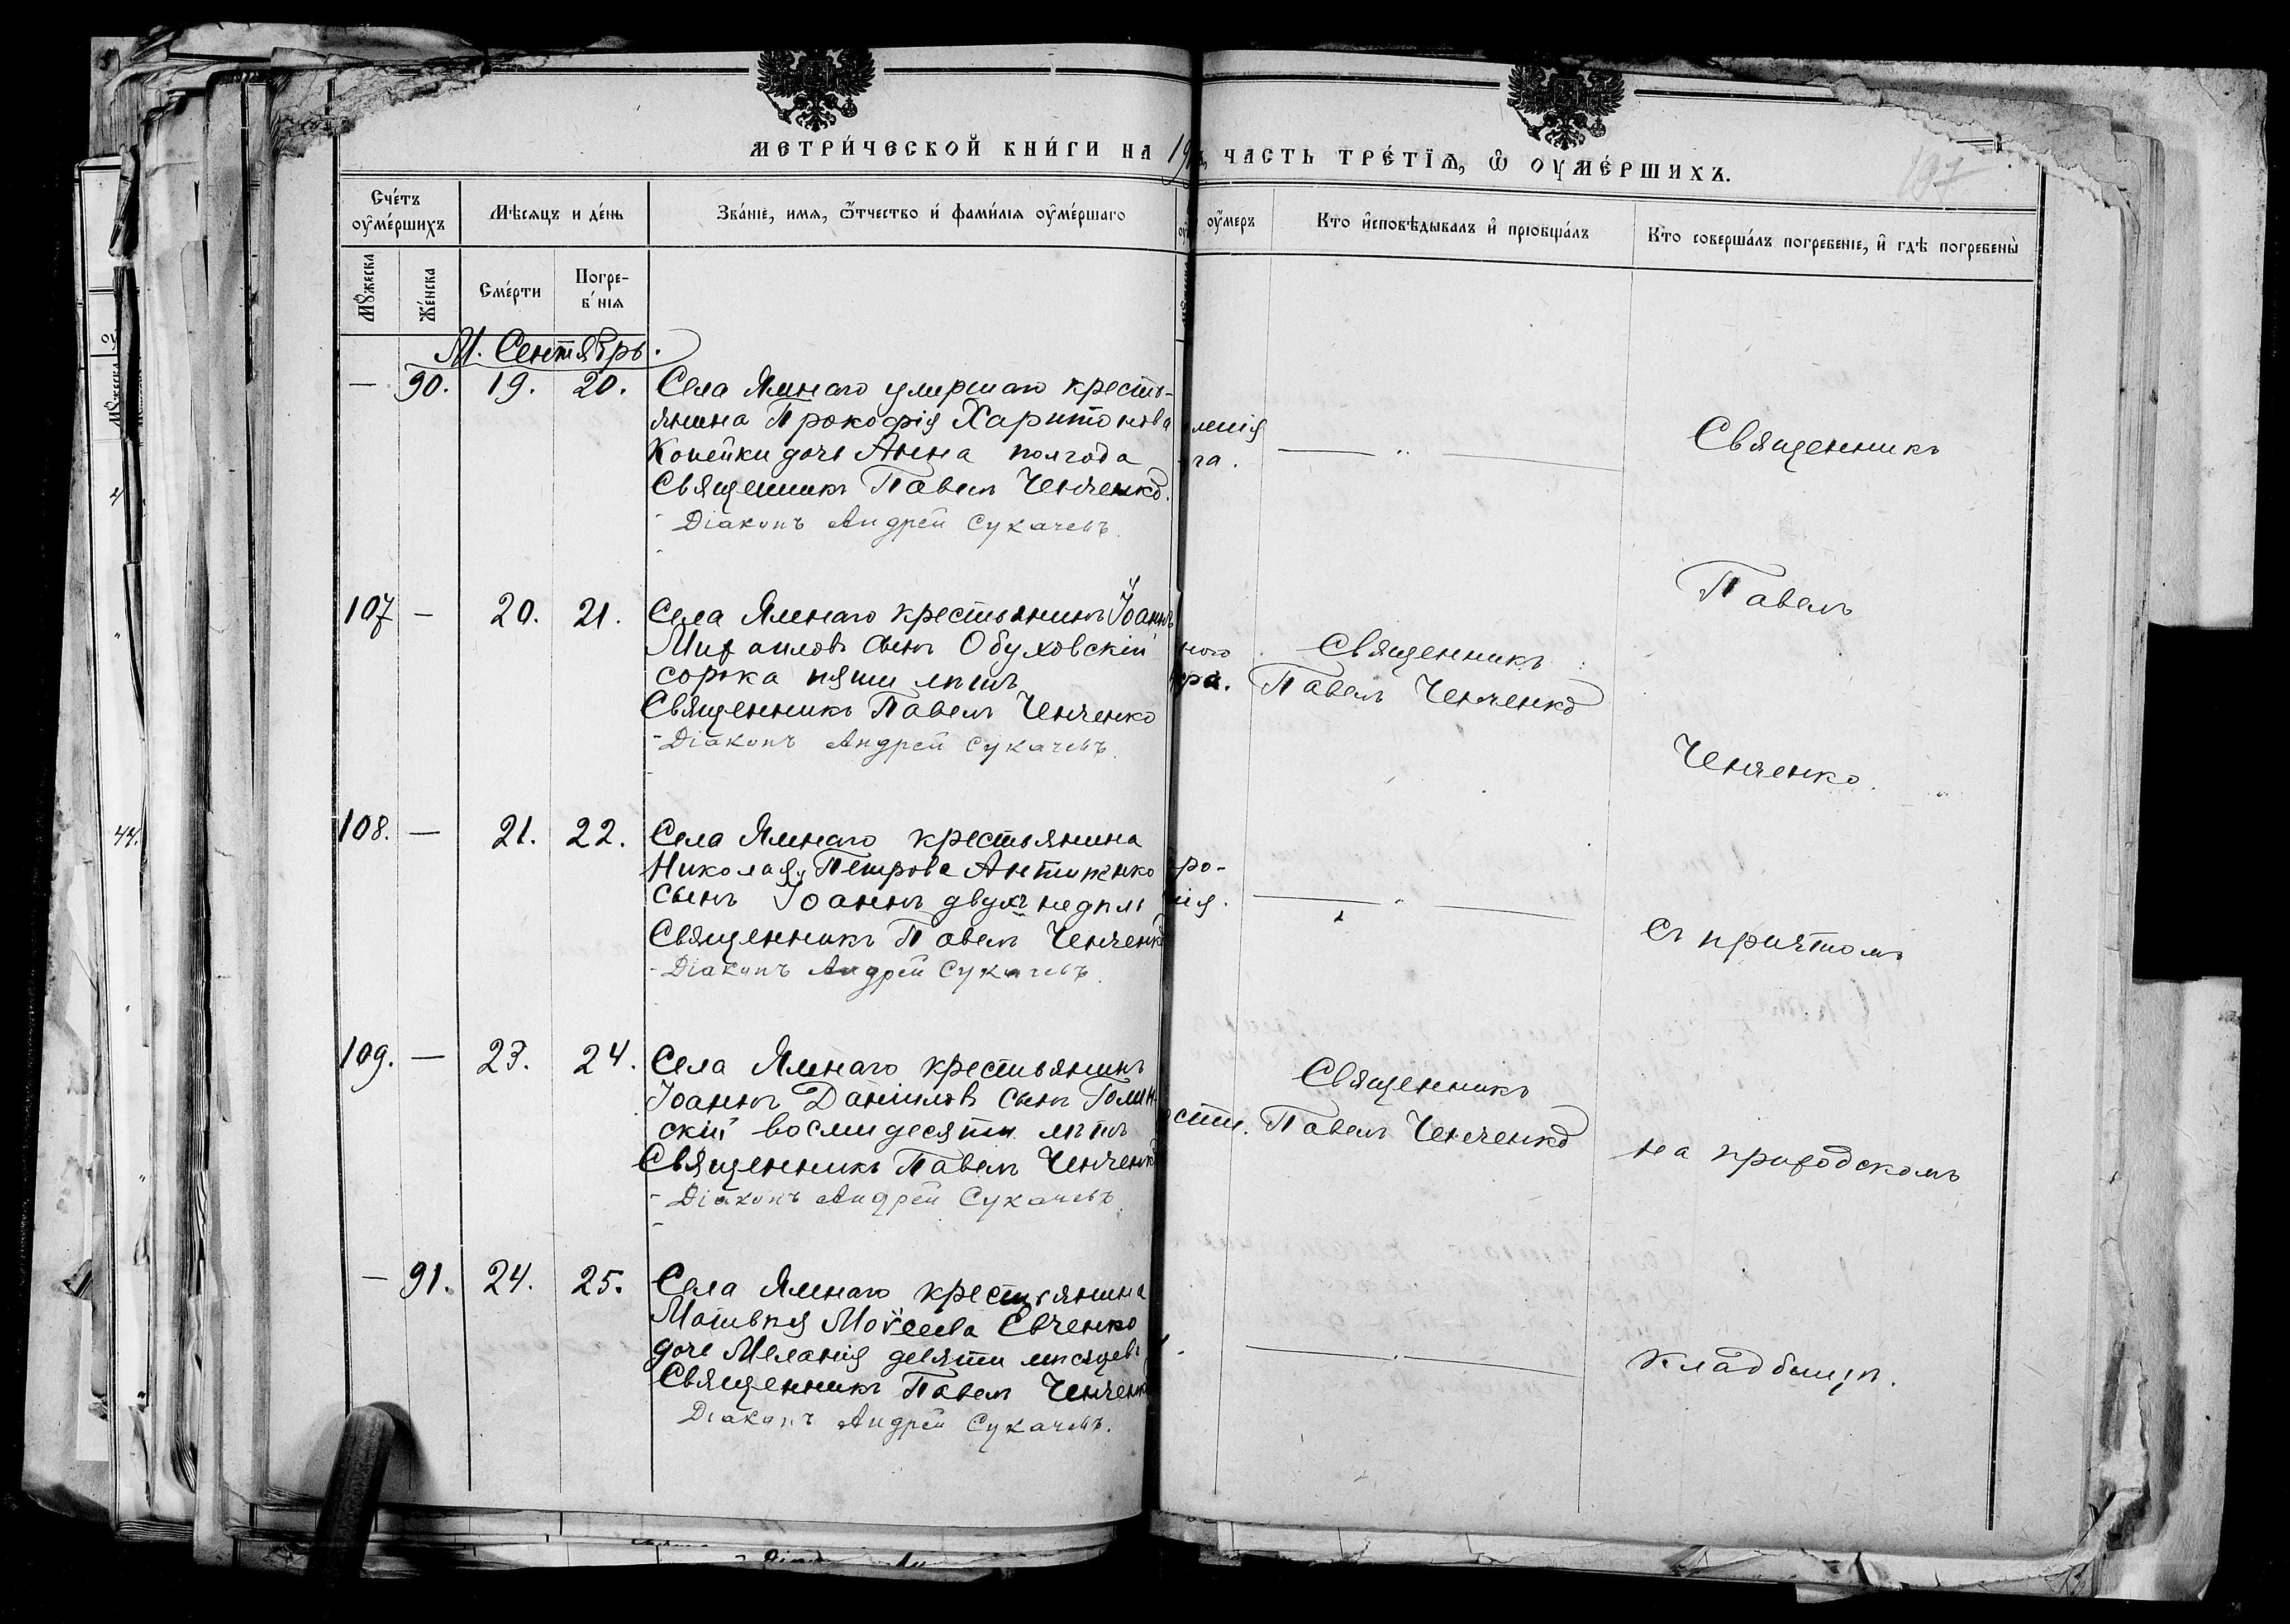 МЕТРИ́ЧЕСКОЙ КНИ́ГИ НА 19
ЧАСТЬ ТРЕ́ТЇѦ, Ѡ҆ ОУ҆МЕ́РШИХЪ.
197
Сче́тъ оу҆ме́ршихъ
Мѣ́сяцъ и де́нь
Зва́нїе, имя, ѻ҆́тчество и҆ фами́лїя оу҆ме́ршаго
оу҆́меръ
Кто и҆сповѣ́дывалъ и҆ прїобща́лъ
Кто соверша́лъ погребе́нїе, и҆ гдѣ̀ погребены̀
Мꙋ́жеска
Же́нска
Сме́рти
Погре-
б́нїя
М. Сентябрь.
— 90. 19. 20.
Села Ямнаго умершаго кресть-
янина Прокофія Харитонова
Копейки дочь Анна полгода
Священникъ Павелъ Ченченко.
Діаконъ Андрей Сукачевъ.
га.
107 — 20. 21.
Села Ямнаго крестьянинъ Іоаннъ
Михаиловъ сынъ Обуховскій
сорока пяти лѣтъ
Священникъ Павелъ Ченченко
Діаконъ Андрей Сукачевъ.
ного
ра.
Священникъ
Павелъ Ченченко
108. — 21. 22.
Села Ямнаго крестьянина
Николая Петрова Антипенко
сынъ Іоаннъ двухъ недѣль
Священникъ Павелъ Ченченко
Діаконъ Андрей Сукачевъ.
ро-
ія.
109. — 23. 24.
Села Ямнаго крестьянинъ
Іоаннъ Даніиловъ сынъ Голин-
скій восмидесяти лѣтъ
Священникъ Павелъ Ченченко
Діаконъ Андрей Сукачевъ.
сти.
Священникъ
Павелъ Ченченко
— 91. 24. 25.
Села Ямнаго крестьянина
Матвѣя Моѵсеева Евченко
дочь Меланія девяти мѣсяцевъ
Священникъ Павелъ Ченченко
Діаконъ Андрей Сукачевъ.
Священникъ
Павелъ
Ченченко.
съ причтомъ
на приходскомъ
кладбищѣ.